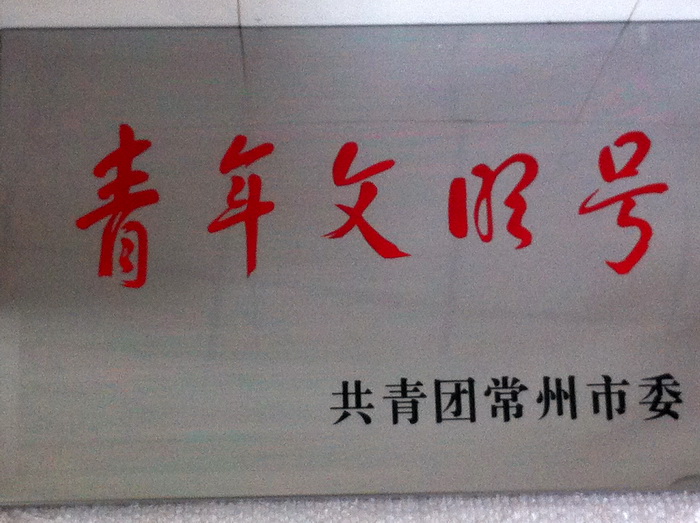 青年文明号
共青团常州市委